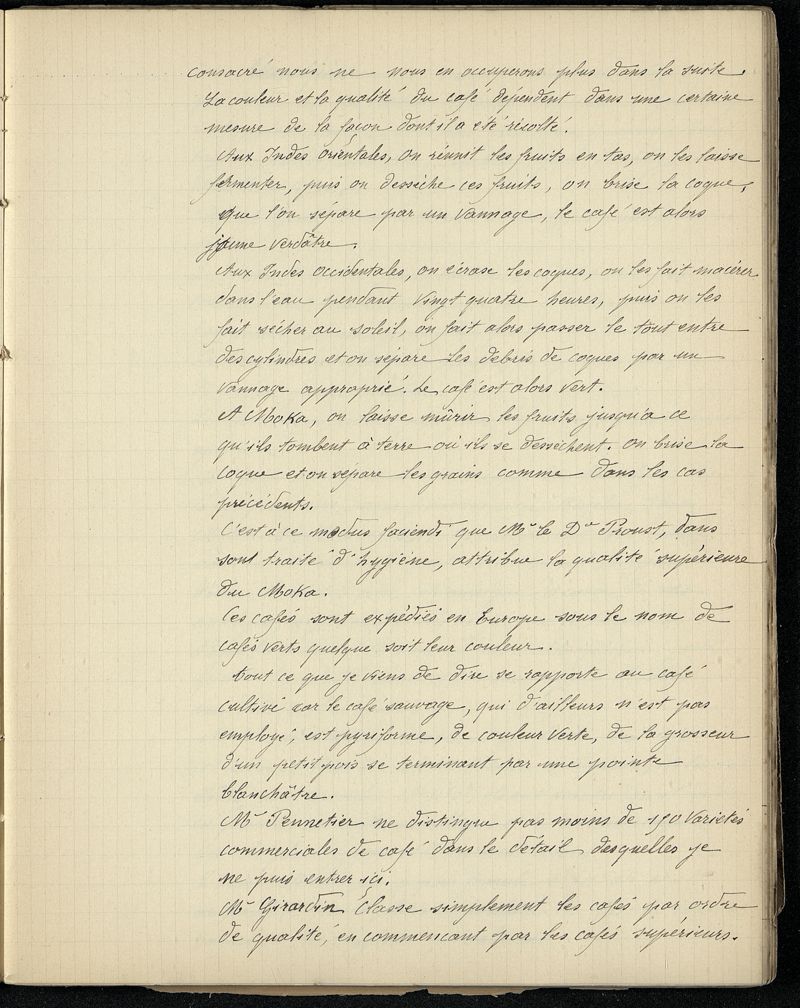 consacré nous ne nous en occuperons plus dans la suite.
La couleur et la qualité du café dépendent dans une certaine
mesure de la façon dont il a été récolté.
Aux Indes orientales, on réunit les fruits en tas, on les laisse
fermenter, puis on dessèche ces fruits, on brise la coque,
que l'on sépare par un vannage, le café est alors
jaune verdâtre.
Aux Indes occidentales, on écrase les coques, on les fait macérer
dans l'eau pendant vingt quatre heures, puis on les
fait sécher au soleil, on fait alors passer le tout entre
des cylindres et on sépare les débris de coques par un
vannage approprié. Le café est alors vert.
A Moka, on laisse mûrir les fruits jusqu'a ce
qu'ils tombent à terre où ils se dessèchent. On brise la
coque et on sépare les grains comme dans les cas
précédents.
C'est à ce modus faciendi que Mr le Dr Proust, dans
sont traité d'hygiène, attribue la qualité supérieure
du Moka.
Ces cafés sont expédiés en Europe sous le nom de
cafés verts quelque soit leur couleur.
Tout ce que je viens de dire se rapporte au café
cultivé car le café sauvage, qui d'ailleurs n'est pas
employé, est pyriforme, de couleur verte, de la grosseur
d'un petit pois se terminant par une pointe
blanchâtre.
Mr Pennetier ne distingue pas moins de 150 variétés
commerciales de café dans le détail desquelles je
ne puis entrer ici.
Mr Girardin classe simplement les cafés par ordre
de qualité, en commencant par les cafés supérieurs.